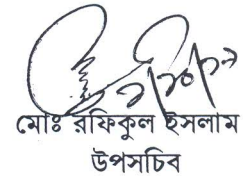 মোঃ রফিকুল ইসলাম
উপসচিব